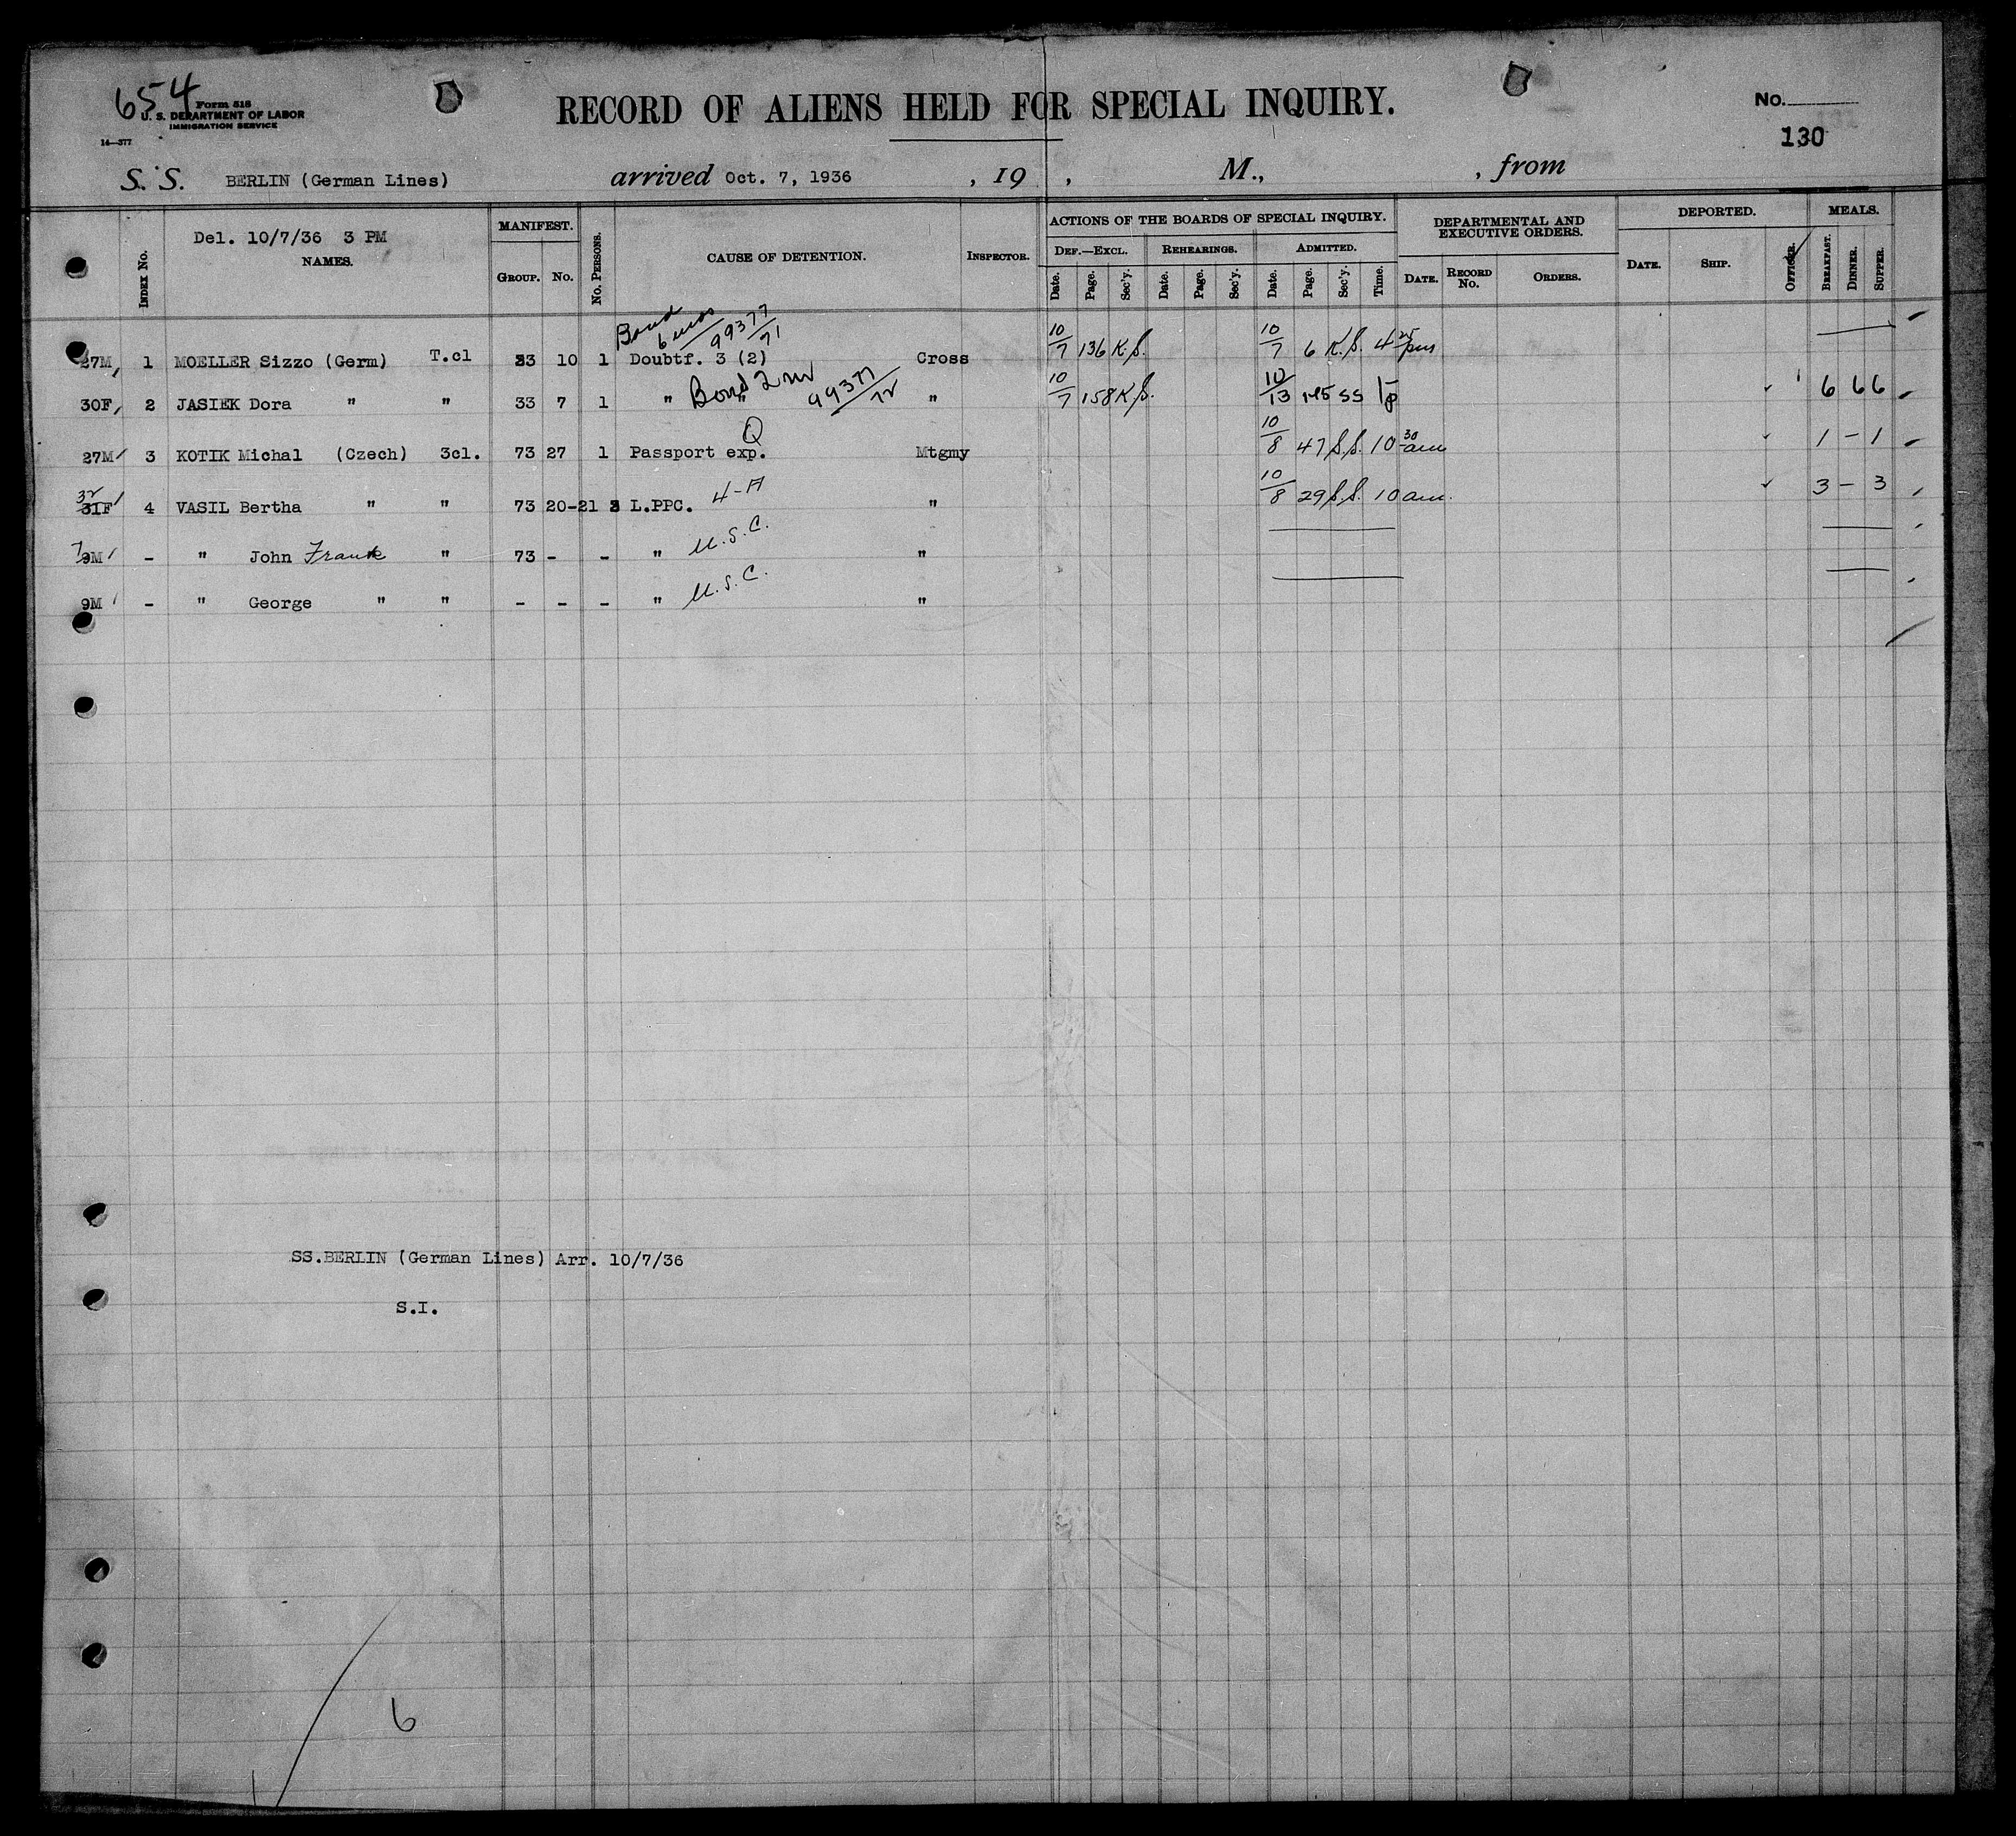 654
Form 518
U. S. DEPARTMENT OF LABOR
IMMIGRATION SERVICE
14—377
RECORD OF ALIENS HELD FOR SPECIAL INQUIRY.
No.
130
S. S. BERLIN (German Lines) arrived Oct. 7, 1936 , 19 , M., , from
Del. 10/7/36 3 PM
INDEX No. NAMES. MANIFEST. GROUP. No. No. PERSONS. CAUSE OF DETENTION. INSPECTOR. ACTIONS OF THE BOARDS OF SPECIAL INQUIRY. DEF.—EXCL. Date. Page. Sec'y. REHEARINGS. Date. Page. Sec'y. ADMITTED. Date. Page. Sec'y. Time. DEPARTMENTAL AND EXECUTIVE ORDERS. DATE. RECORD No. ORDERS. DEPORTED. DATE. SHIP. OFFICER. MEALS. BREAKFAST. DINNER. SUPPER.
Bond 6 mos 99377/71
27M 1 MOELLER Sizzo (Germ) T.cl 33 10 1 Doubtf. 3 (2) Cross 10/7 136 K.S. 10/7 6 K.S. 4 25 pm
30F 2 JASIEK Dora " " 33 7 1 " Bond " 99377/72 " 10/7 158 K.S. 10/13 145 SS 6 6 6
27M 3 KOTIK Michal (Czech) 3cl. 73 27 1 Passport exp. Q Mtgmy 10/8 47 S.S. 10 30 am 1 - 1
32
31F 4 VASIL Bertha " " 73 20-21 3 L.PPC. 4-A " 10/8 29 S.S. 10 am. 3 - 3
7
9M - " John Frank " 73 - - " U.S.C. "
9M - " George " " - - - " U.S.C. "
SS.BERLIN (German Lines) Arr. 10/7/36
S.I.
6